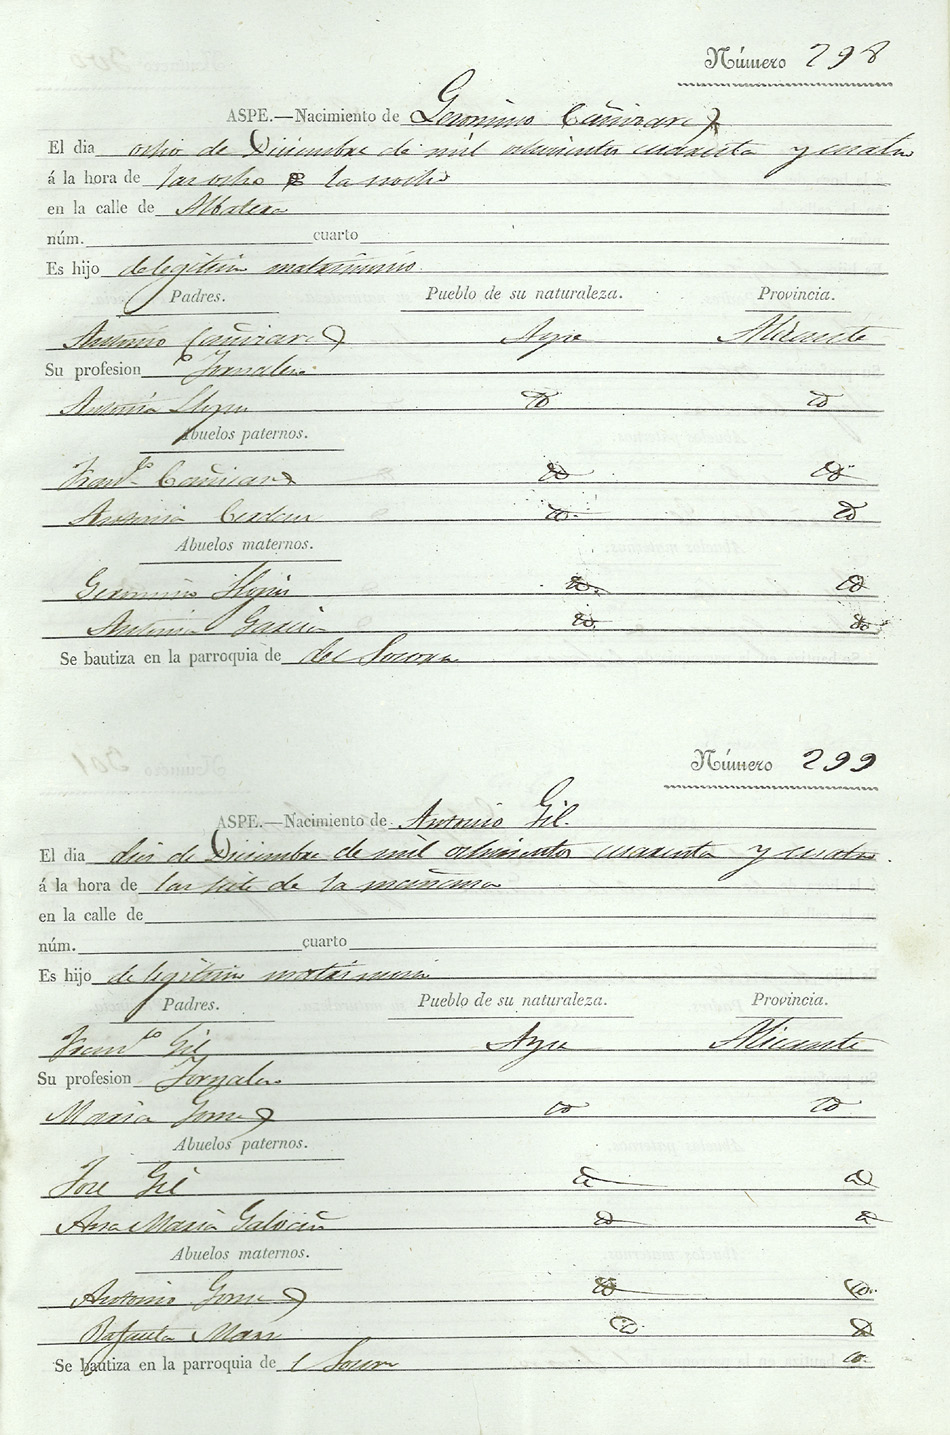 Número 298
ASPE.—Nacimiento de Geronimo Cañizarez
El dia ocho de Diciembre de mil ochocientos cuarenta y cuatro
á la hora de las ocho de la noche
en la calle de Albatera
núm. cuarto
Es hijo de legitimo matrimonio
Padres. Pueblo de su naturaleza. Provincia.
Antonio Cañizarez Aspe Alicante
Su profesion Jornalero
Antonia id id
Abuelos paternos.
Franco Cañizarez id id
Antonia Cerdan id id
Abuelos maternos.
Geronimo id id
Antonia Garcia id id
Se bautiza en la parroquia de del Socorro
Número 299
ASPE.—Nacimiento de Antonio Gil.
El dia diez de Diciembre de mil ochocientos cuarenta y cuatro.
á la hora de las siete de la mañana
en la calle de
núm. cuarto
Es hijo de legitimo matrimonio
Padres. Pueblo de su naturaleza. Provincia.
Franco Gil Aspe Alicante
Su profesion Jornalero
Maria Gomez id id
Abuelos paternos.
Jose Gil id id
Ana Maria id id
Abuelos maternos.
Antonio Gomez id id
Rafaela id id
Se bautiza en la parroquia de l Socorro id.